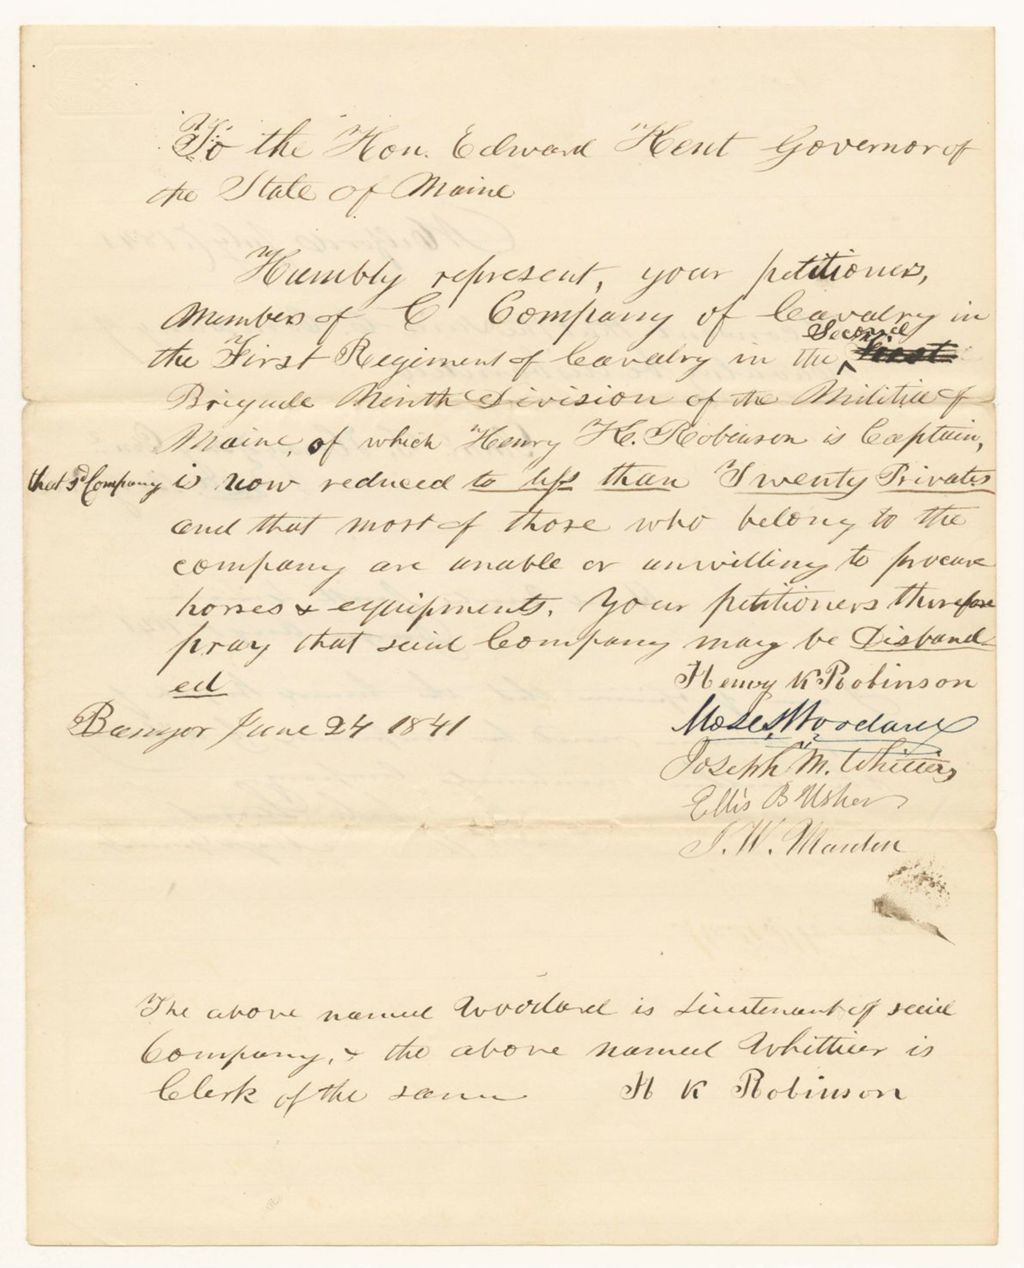 To the Hon. Edward Kent Governor of
the State of Maine
Humbly represent, your petitioners,
Members of C Company of Cavalry in
the First Regiment of Cavalry in the Second
Brigade Ninth Division of the Militia of
Maine, of which Henry K. Robinson is Captain,
that sd Company is now reduced to less than Twenty Privates
and that most of those who belong to the
company are unable or unwilling to procure
horses & equipments. Your petitioners therefore
pray that said Company may be Disband-
ed
Henry K Robinson
Bangor June 24 1841
Moses Woodard
Joseph M. Whittier
Ellis B Usher
J. W. Mardin
The above named Woodard is Lieutenant of said
Company, & the above named Whittier is
Clerk of the same
H K Robinson